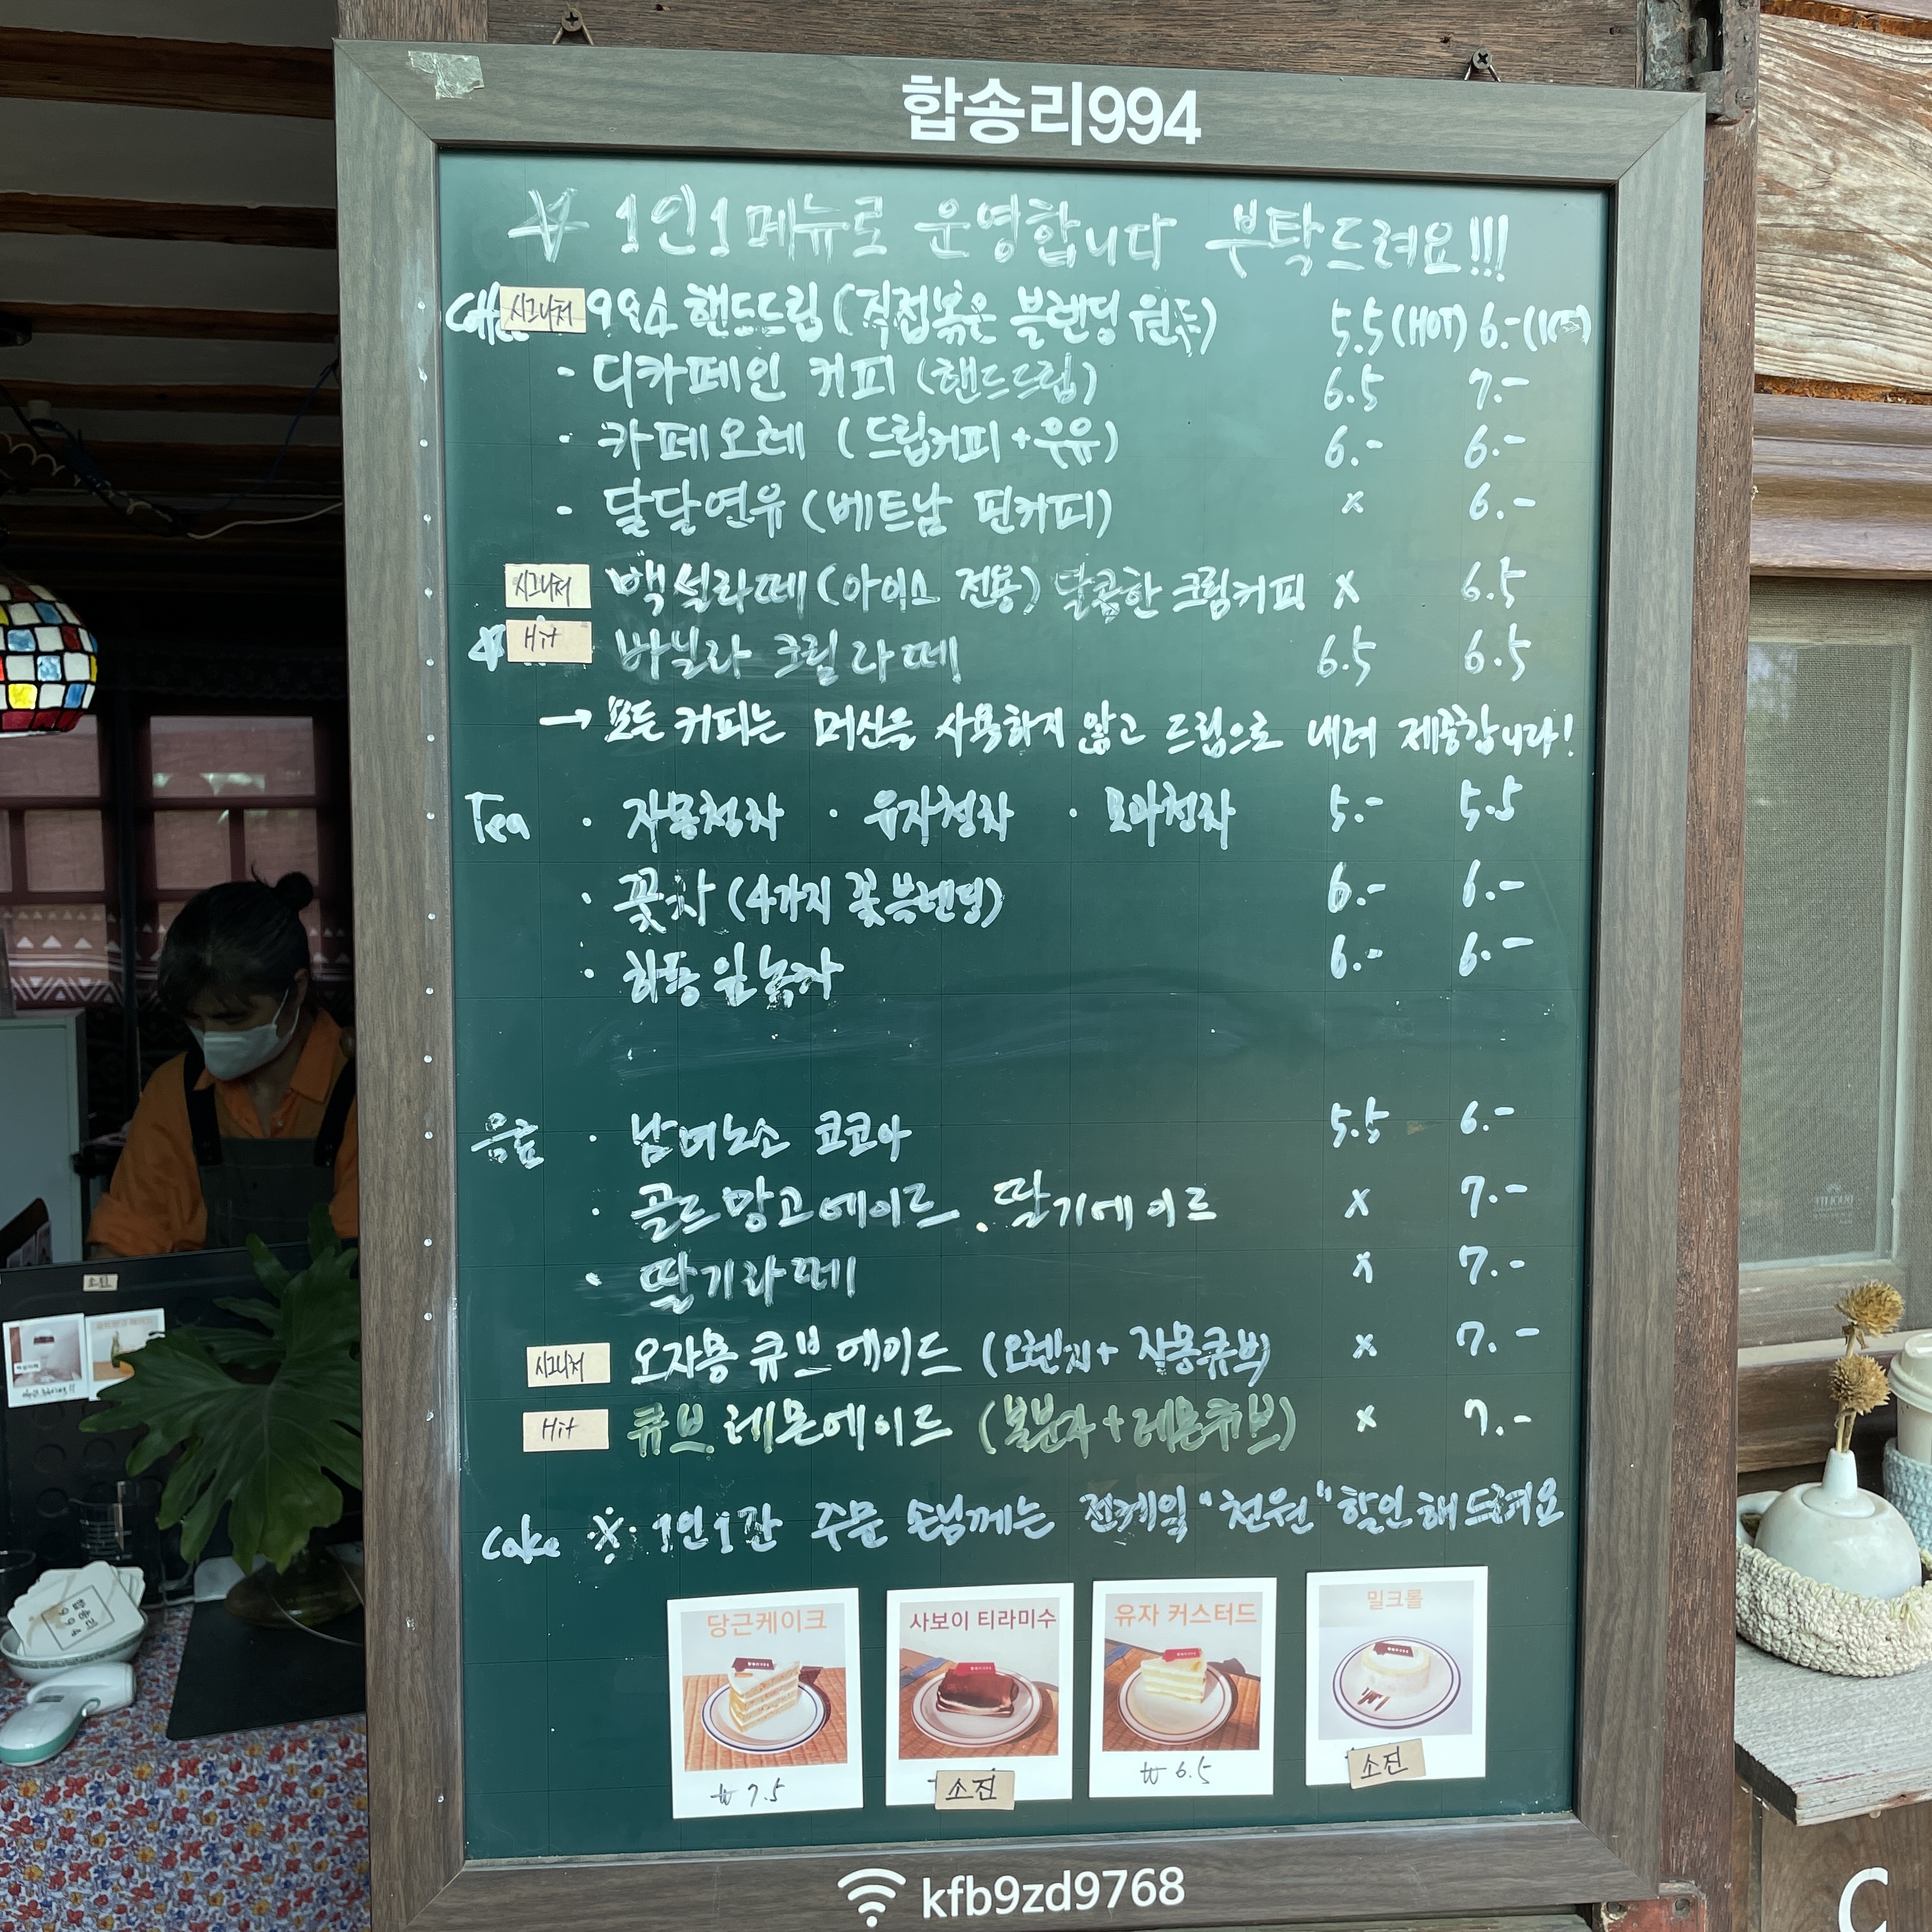 합송리994
☆ 1인1메뉴로 운영합니다 부탁드려요!!!
Coffee 시그니처 994 핸드드립 (직접볶은 블렌딩 원두) 5.5(HOT) 6.-(ICE)
· 디카페인 커피 (핸드드립) 6.5 7.-
· 카페오레 (드립커피+우유) 6.- 6.-
· 달달연유 (베트남 핀커피) x 6.-
시그니처 백설라떼 (아이스 전용) 달콤한 크림커피 x 6.5
☆ Hit 바닐라 크림라떼 6.5 6.5
→ 모든 커피는 머신을 사용하지 않고 드립으로 내려 제공합니다!
Tea · 자몽청차 · 유자청차 · 모과청차 5.- 5.5
· 꽃차 (4가지 꽃블렌딩) 6.- 6.-
· 하동 잎녹차 6.- 6.-
음료 · 남머노소 코코아 5.5 6.-
· 골드망고에이드 . 딸기에이드 x 7.-
· 딸기라떼 x 7.-
시그니처 오자몽 큐브 에이드 (오렌지+ 자몽큐브) x 7.-
Hit 큐브 레몬에이드 (복분자+레몬큐브) x 7.-
Cake ※ 1인1잔 주문 손님께는 전케잌 "천원" 할인해드려요
당근케이크 사보이 티라미수 유자 커스터드 밀크롤
₩ 7.5 소진 ₩ 6.5 소진
kfb9zd9768
소진
합송리994
C